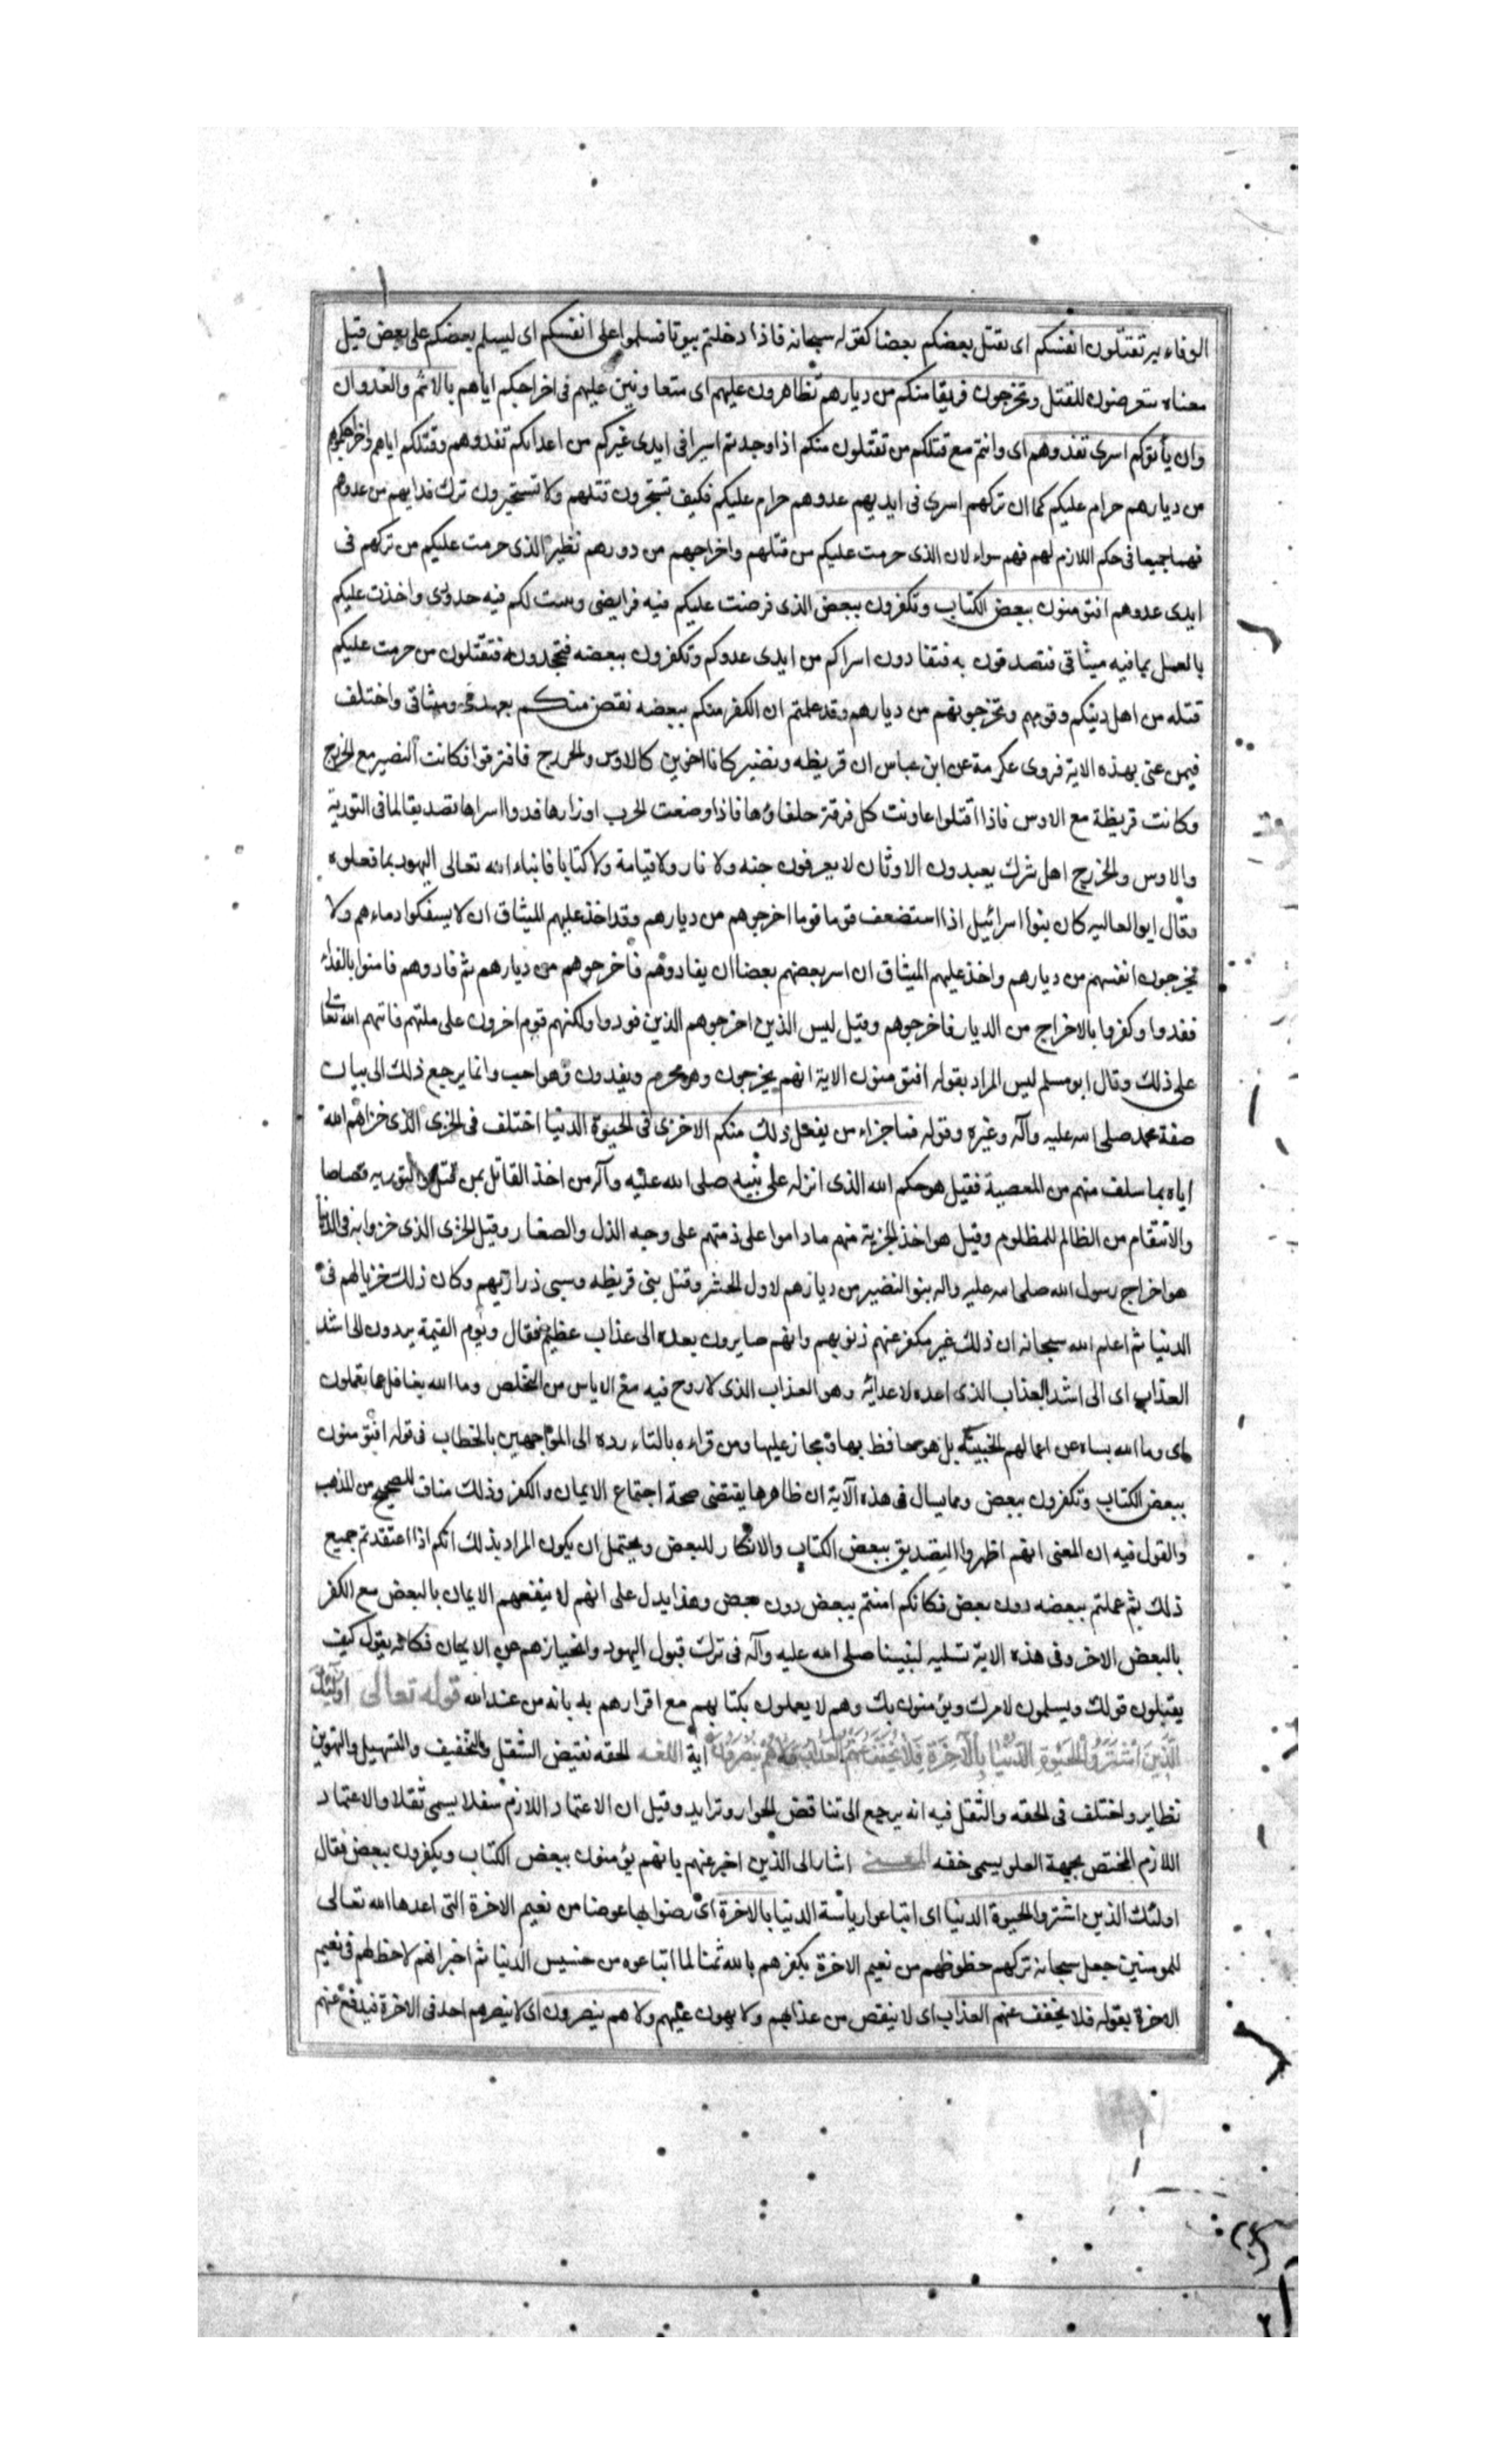 الوفاء به تقتلون انفسكم اى يقتل بعضكم بعضا كقوله سبحانه فاذا دخلتم بيوتا فسلموا على انفسكم اى ليسلم بعضكم على بعض قيل
معناه تتعرضون للقتل وتخرجون فريقا منكم من ديارهم تظاهرون عليهم اى متعاونين عليهم فى اخراجكم اياهم بالاثم والعدوان
وان يأتوكم اسرى تفدوهم اى وانتم مع قتلكم من تقتلون منكم اذا وجدتم اسيرا فى ايدى غيركم من اعدائكم تفدوهم وقتلكم اياهم واخراجكموهم
من ديارهم حرام عليكم كما ان تركهم اسرى فى ايديهم عدوهم حرام عليكم فكيف تستجيزون قتلهم ولا تستجيزون ترك فدايهم من عدوهم
فهما جميعا فى حكم اللازم لهم فهم سواء لان الذى حرمت عليكم من قتلهم واخراجهم من دورهم نظير الذى حرمت عليكم من تركهم فى
ايدى عدوهم افتؤمنون ببعض الكتاب وتكفرون ببعض الذى فرضت عليكم فيه فرايضى وبينت لكم فيه حدودى واخذت عليكم
بالعمل بما فيه ميثاقى فتصدقون به فتفادون اسراكم من ايدى عدوكم وتكفرون ببعضه فتجحدونه فتقتلون من حرمت عليكم
قتله من اهل دينكم وقومهم وتخرجونهم من ديارهم وقد علمتم ان الكفر منكم ببعضه نقض منكم بعهدى وميثاقى واختلف
فيمن عنى بهذه الاية فروى عكرمة عن ابن عباس ان قريظه ونضير كانا اخوين كالاوس والخزرج فافترقوا فكانت النضير مع الخزرج
وكانت قريظة مع الاوس فاذا اقتلوا عاونت كل فرقة حلفاؤها فاذا وضعت الحرب اوزارها فدوا اسراها تصديقا لما فى التورية
والاوس والخزرج اهل شرك يعبدون الاوثان لا يعرفون جنه ولا نار ولا قيامة ولا كتابا فانباء الله تعالى اليهود بما فعلوه
وقال ابو العاليه كان بنوا اسرائيل اذا استضعف قوما قوما اخرجوهم من ديارهم وقد اخذ عليهم الميثاق ان لا يسفكوا دماءهم ولا
يخرجون انفسهم من ديارهم واخذ عليهم الميثاق ان اسر بعضهم بعضا ان يفادوهم فاخرجوهم من ديارهم ثم فادوهم فامنوا بالفداء
ففدوا وكفروا بالاخراج من الديار فاخرجوهم وقيل ليس الذين اخرجوهم الذين فودوا ولكنهم قوم اخرون على ملتهم فانبهم الله تعالى
على ذلك وقال ابو مسلم ليس المراد بقوله افتؤمنون الاية انهم يخرجون وهو محرم ويفدون وهو واجب وانما يرجع ذلك الى بيان
صفة محمد صلى الله عليه وآله وغيره وقوله فما جزاء من يفعل ذلك منكم الا خزى فى الحيوة الدنيا اختلف فى الخزى الذى خزاهم الله
اياه بما سلف منهم من المعصية فقيل هو حكم الله الذى انزله على نبيه صلى الله عليه وآله من اخذ القاتل بمن قتل والقود به قصاصا
والانتقام من الظالم للمظلوم وقيل هو اخذ الجزية منهم ما داموا على ذمتهم على وجه الذل والصغار وقيل الخزى الذى خزوا به فى الدنيا
هو اخراج رسول الله صلى الله عليه واله بنو النضير من ديارهم لاول الحشر وقتل بنى قريظه وسبى ذراريهم وكان ذلك خزيا لهم فى
الدنيا ثم اعلم الله سبحانه ان ذلك غير مكفر عنهم ذنوبهم وانهم صايرون بعده الى عذاب عظيم فقال ويوم القيمة يردون الى اشد
العذاب اى الى اشد العذاب الذى اعده لاعدائه وهو العذاب الذى لا روح فيه مع الاياس من التخلص وما الله بغافل عما يعملون
اى وما الله بساه عن اعمالهم الخبيثه بل هو حافظ بها ومجاز عليها ومن قراءه بالتاء رده الى المواجهين بالخطاب فى قوله افتؤمنون
ببعض الكتاب وتكفرون ببعض ومما يسال فى هذه الآية ان ظاهرها يقتضى صحة اجتماع الايمان والكفر وذلك مناف للصحيح من المذهب
والقول فيه ان المعنى انهم اظهروا التصديق ببعض الكتاب والانكار للبعض ويحتمل ان يكون المراد بذلك انكم اذا اعتقدتم جميع
ذلك ثم عملتم ببعضه دون بعض فكانكم امنتم ببعض دون بعض وهذا يدل على انهم لا ينفعهم الايمان بالبعض مع الكفر
بالبعض الاخر وفى هذه الاية تسليه لنبينا صلى الله عليه وآله فى ترك قبول اليهود وانحيازهم عن الايمان فكانه يقول كيف
يقبلون قولك ويسلمون لامرك ويؤمنون بك وهم لا يعملون بكتابهم مع اقرارهم به بانه من عند الله قوله تعالى اولئك
الَّذِينَ اشْتَرَوُا الْحَيٰوةَ الدُّنْيَا بِالْآخِرَةِ فَلَا يُخَفَّفُ عَنْهُمُ الْعَذَابُ وَلَا هُمْ يُنْصَرُونَ اية اللغه الخفه نقيض الثقل والتخفيف والتسهيل والتهوين
نظاير واختلف فى الخفه والثقل فيه انه يرجع الى تناقض الجواهر وتزايد وقيل ان الاعتماد اللازم سفلا يسمى ثقلا والاعتماد
اللازم المختص بجهة العلو يسمى خفه المعنى اشار الى الذين اخبر عنهم بانهم يؤمنون ببعض الكتاب ويكفرون ببعض فقال
اولئك الذين اشتروا الحيوة الدنيا اى ابتاعوا رياسة الدنيا بالاخرة اى رضوا بها عوضا من نعيم الاخرة التى اعدها الله تعالى
للمومنين جعل سبحانه تركهم حظوظهم من نعيم الاخرة بكفرهم بالله ثمنا لما ابتاعوه من خسيس الدنيا ثم اخبر انهم لا حظ لهم فى نعيم
الاخرة بقوله فلا يخفف عنهم العذاب اى لا ينقص من عذابهم ولا يهون عليهم ولا هم ينصرون اى لا ينصرهم احد فى الاخرة فيدفع عنهم